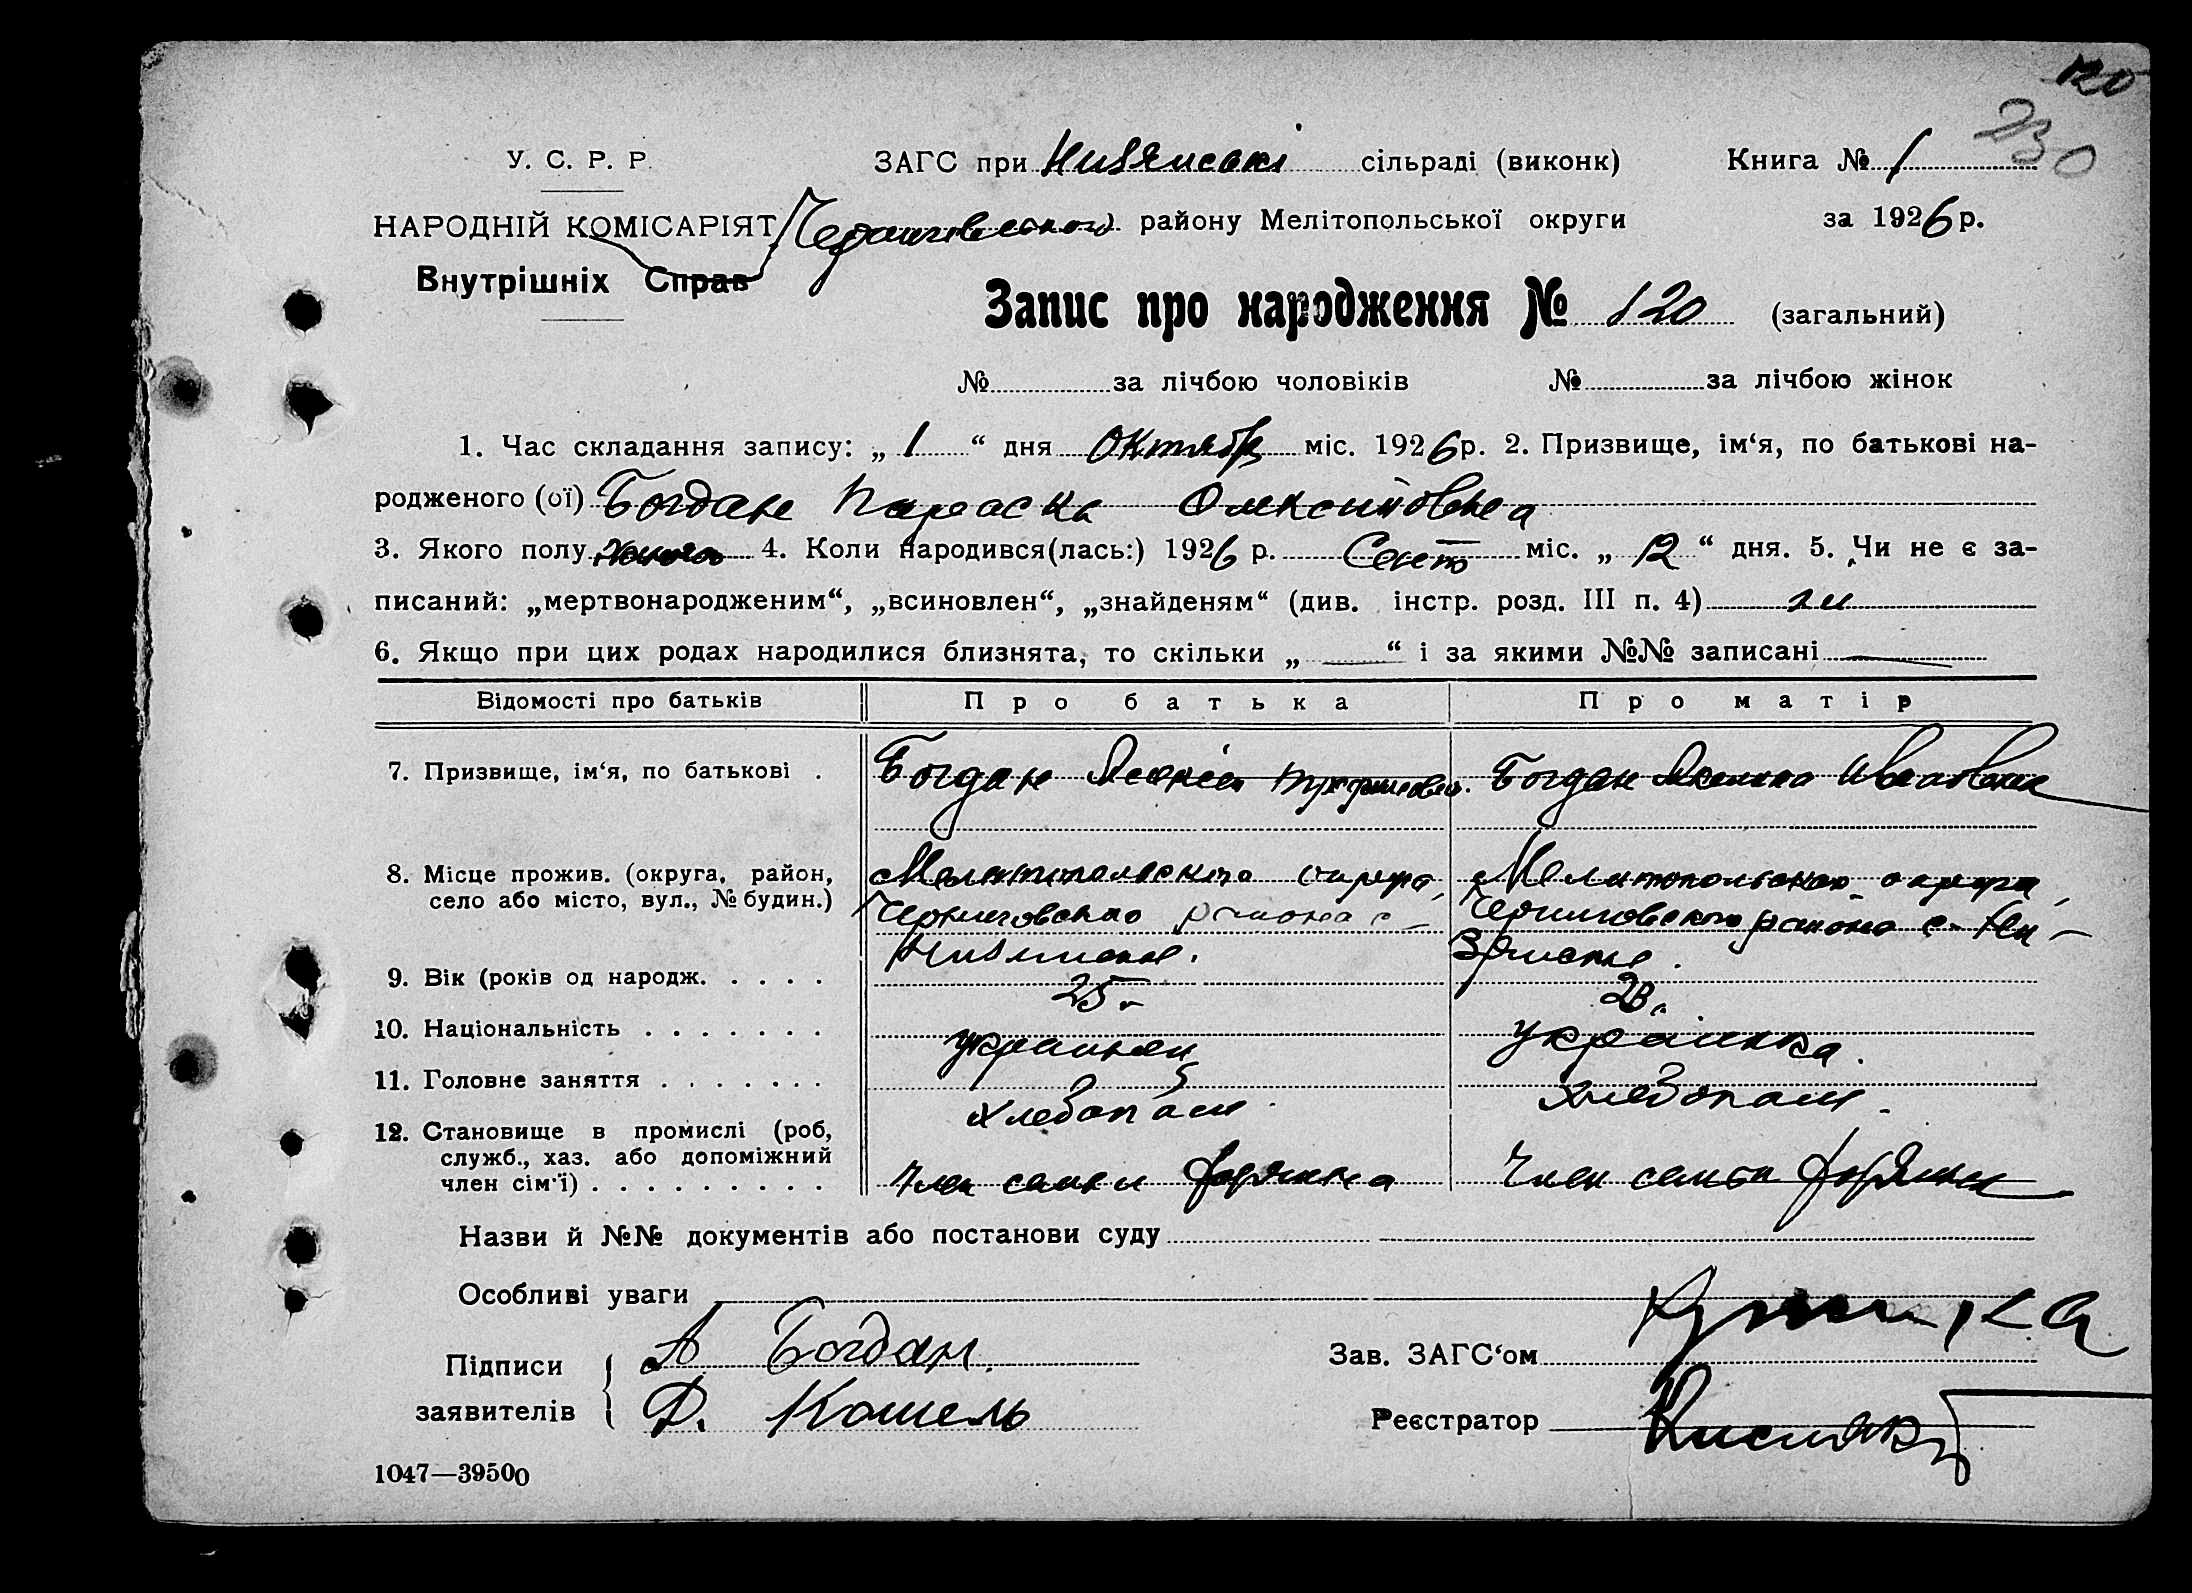 120
230
У. С. Р. Р. ЗАГС при сільраді (виконк) Книга № 1
НАРОДНІЙ КОМІСАРІЯТ району Мелітопольської округи за 1926 р.
Внутрішніх Справ
Запис про народження № 120 (загальний)
№ за лічбою чоловіків № за лічбою жінок
1. Час складання запису: „ 1 “ дня Октября міс. 1926 р. 2. Призвище, ім‘я, по батькові на-
родженого (ої) Богдан Параска Олексиївна
3. Якого полу 4. Коли народився(лась:) 1926 р. Сент міс. „ 12 “ дня. 5. Чи не є за-
писаний: „мертвонародженим“, „всиновлен“, „знайденям“ (див. інстр. розд. III п. 4)
6. Якщо при цих родах народилися близнята, то скільки „ “ і за якими №№ записані
Відомості про батьків Про батька Про матір
7. Призвище, ім‘я, по батькові . Богдан Богдан Ивановна
8. Місце прожив. (округа, район, Мелитопольского округа, Мелитопольского округа,
село або місто, вул., № будин.) Черниговского района с Черниговского района с.
9. Вік (років од народж. . . . . 25 23
10. Національність . . . . . . . украинец українка.
11. Головне заняття . . . . . . . хлебопаш. хлебопаш.
12. Становище в промислі (роб,
служб., хаз. або допоміжний
член сім‘ї) . . . . . . . . . Член семьи Член семьи
Назви й №№ документів або постанови суду
Особливі уваги
Підписи А Богдан. Зав. ЗАГС‘ом
заявителів Д. Кошель Реєстратор
1047—39500